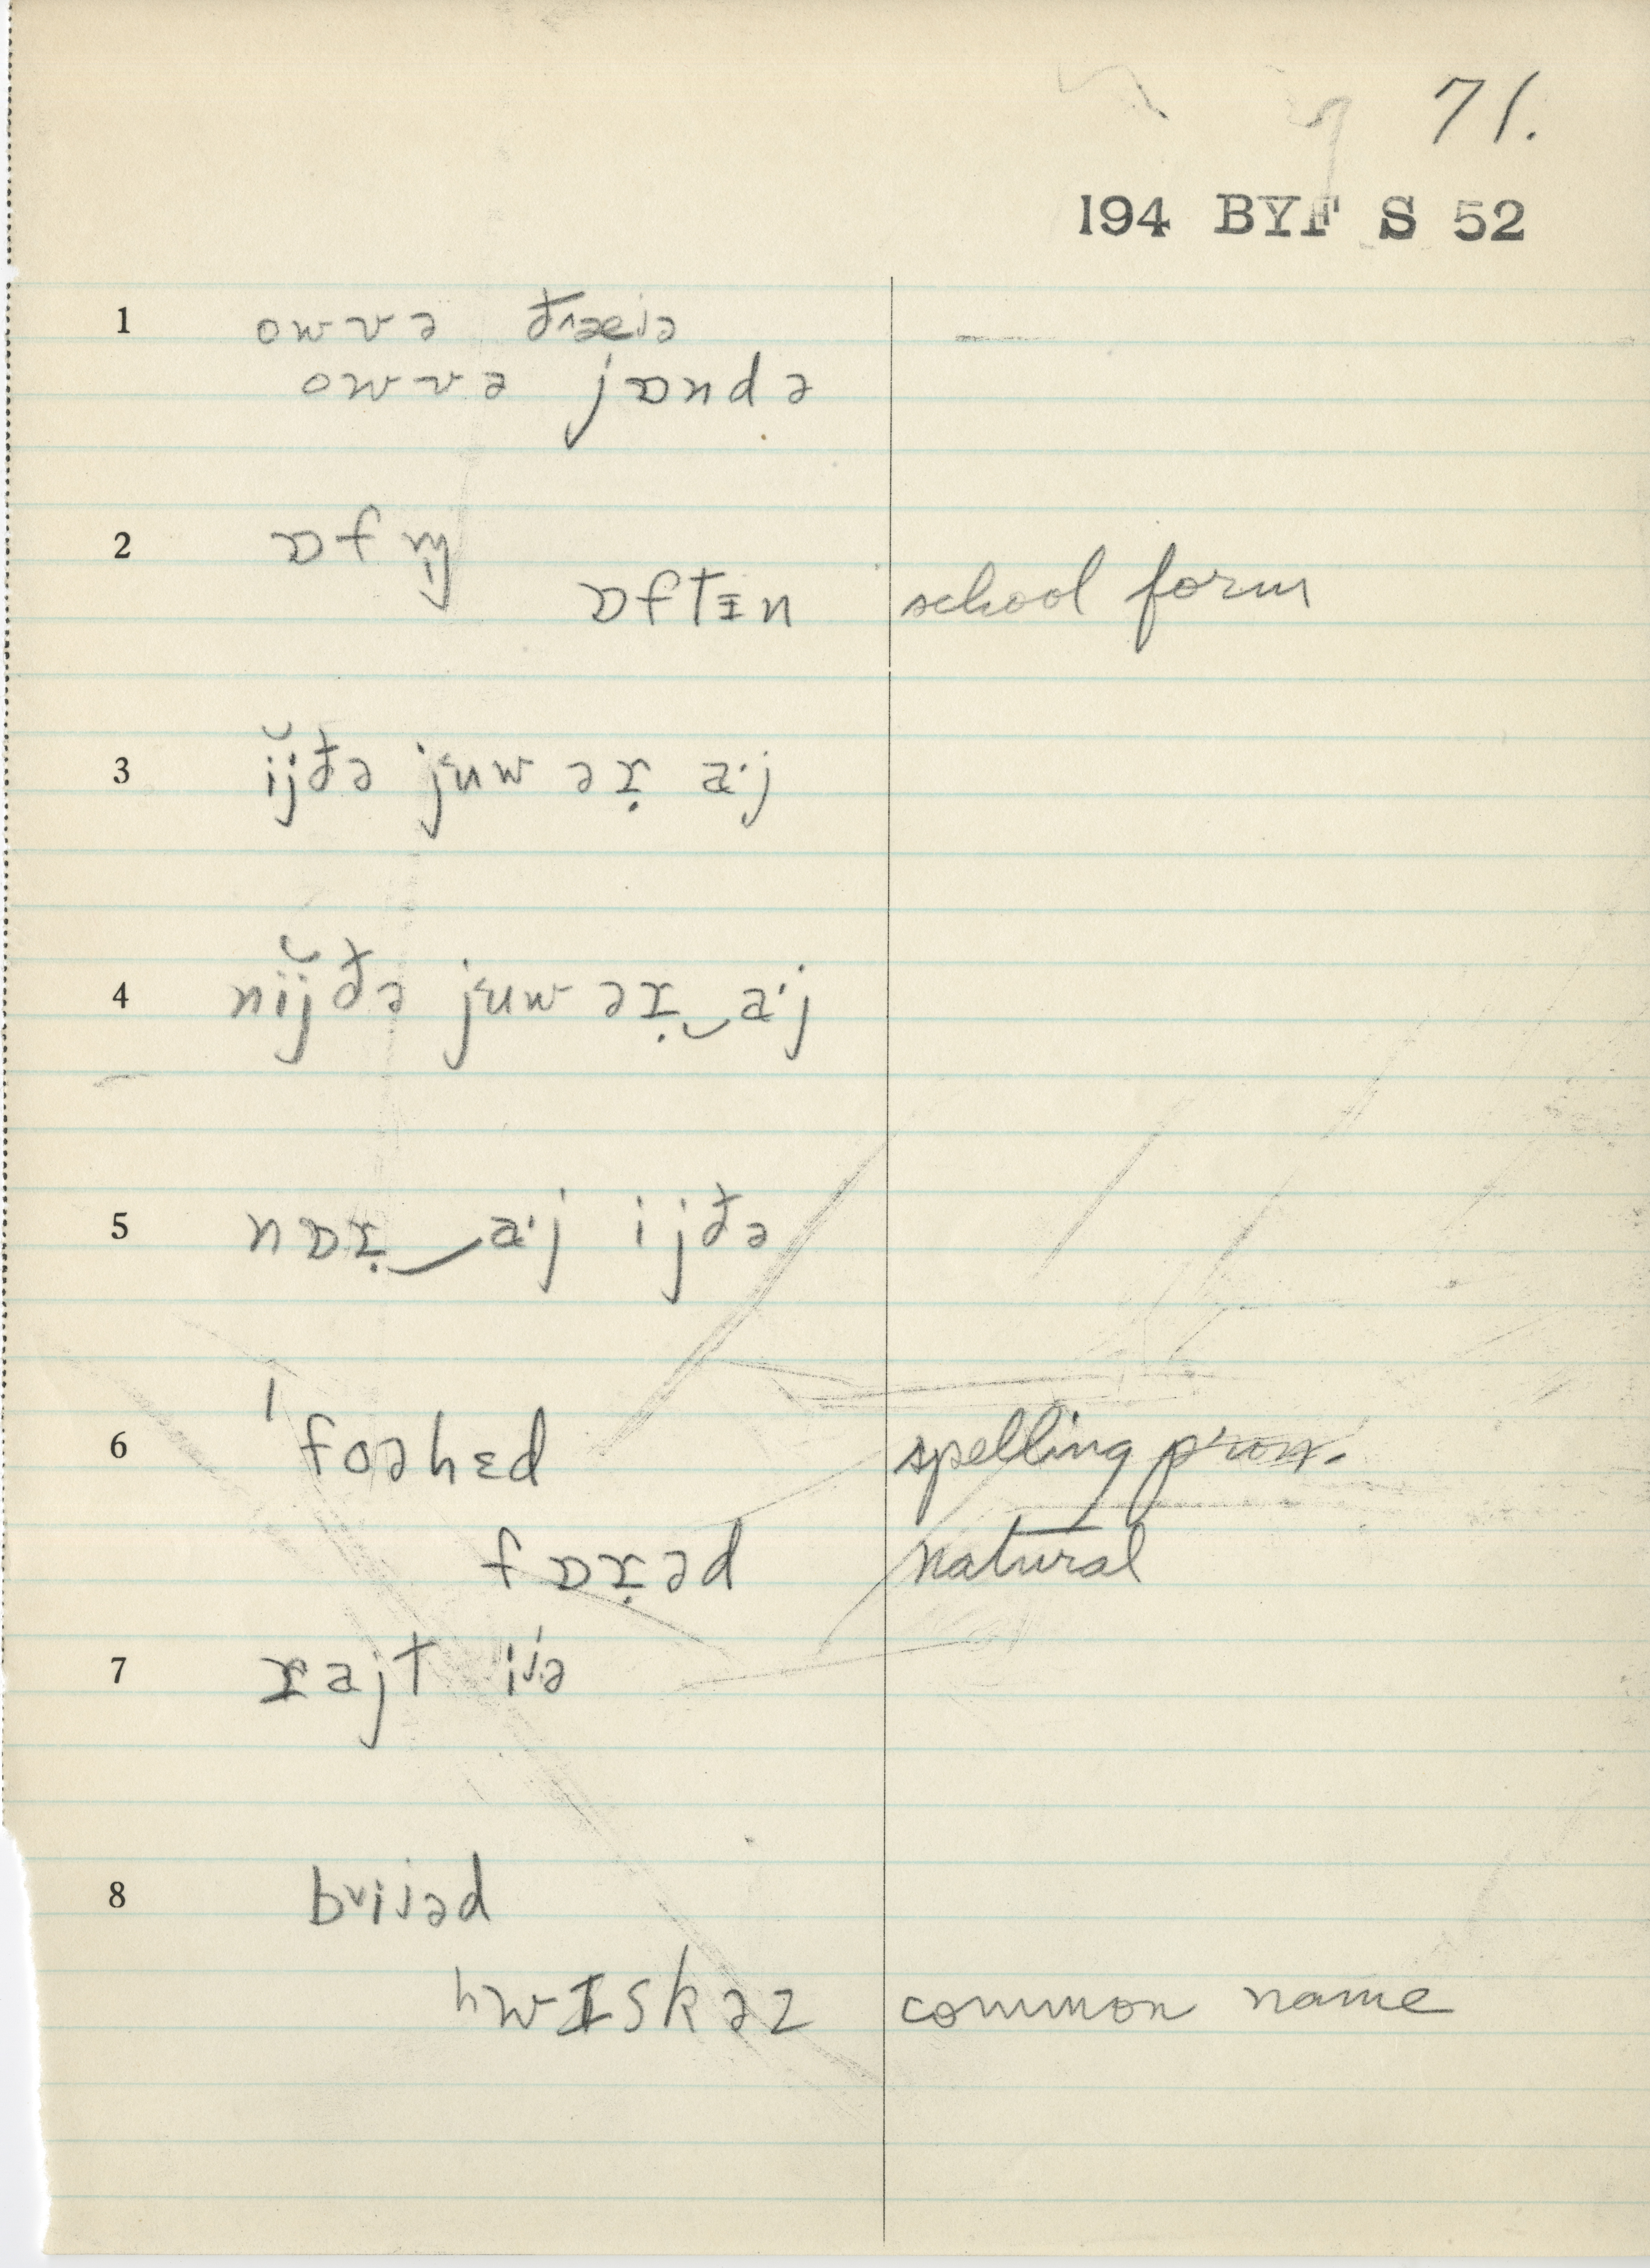 71.
194 BYF S 52
1 owvə
owvə jɒndə
2 ɒf
ɒftɪn school form
3 ijðə juw əɪ̣ a·j
4 nijðə juw əɪ̣‿a·j
5 nɒɪ̣‿a·j ijðə
6 ˈfoəhɛd spelling pron.
fɒɪ̣əd natural
7 ɪajt
8
hwɪskəz common name